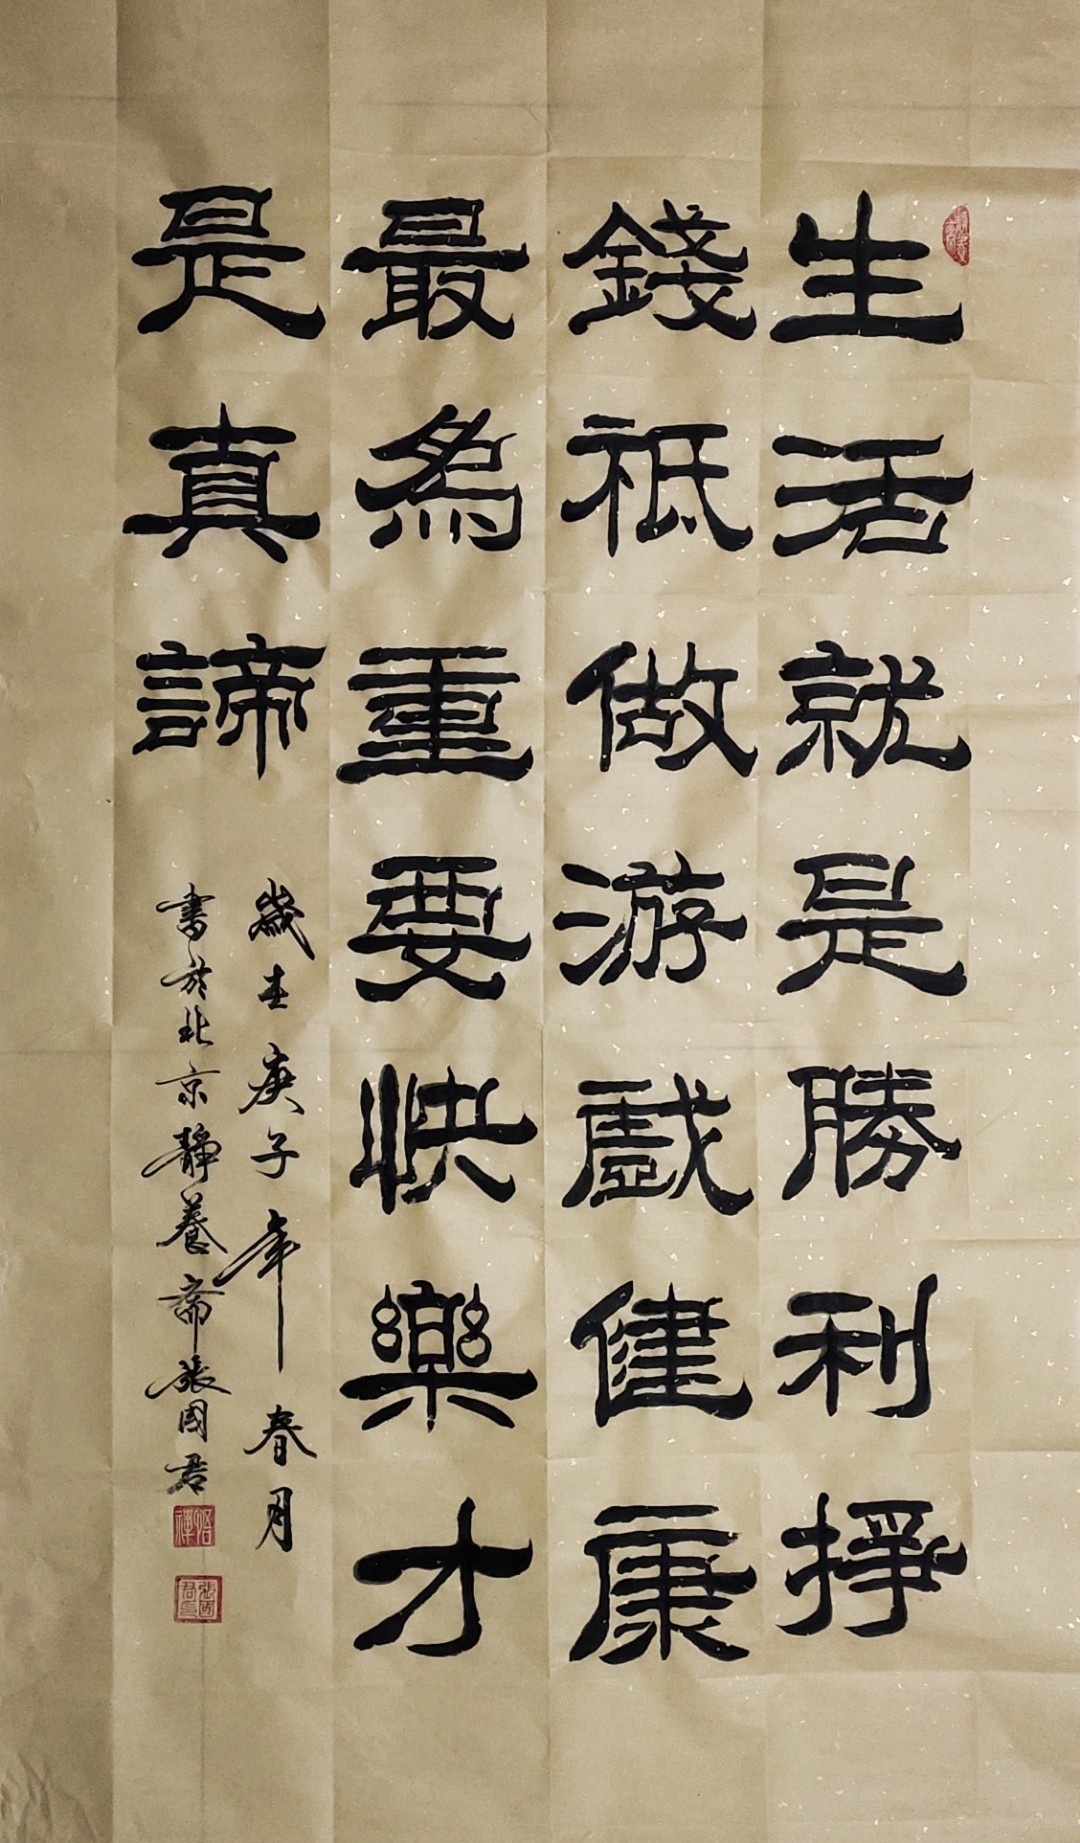 生活就是勝利掙
錢祇做游戲健康
最為重要快樂才
是真諦
歲在庚子年春月
書於北京靜養齋張國君
悟禪
張國君印